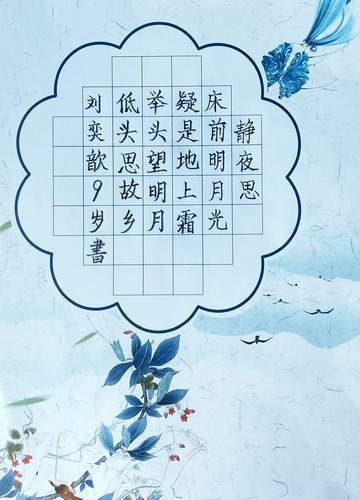 静夜思
床前明月光
疑是地上霜
举头望明月
低头思故乡
刘奕歆9岁書